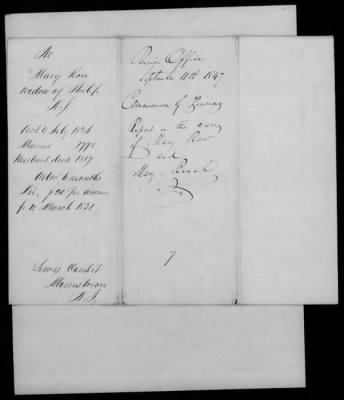 No
Mary Row
widow of Philip
N.J
Act 4 July 1836
Married 1772
Husband died 1817
6 months
$20 per annum
fr 4 March 1831
Lewis Condict
Morristown
N.J.
Pension Office
September 11th 1847
Commissioner of Pensions
Report in the case
of Mary Row
and
Mary
7